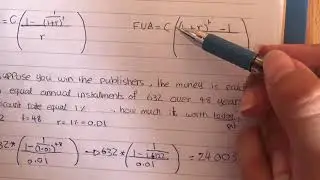 = C ( 1 - 1/(1+r)^t / r )   FVA = C ( (1+r)^t - 1
suppose you win the publishers, the money is paid
equal annual instalments of 632 over 48 years
rate equal 1% how much it worth
t = 48   r = 1% = 0.01
632 * ( 1 - 1/(1.01)^48 / 0.01 ) → 632 * ( 1 - / 0.01 ) = 24 003